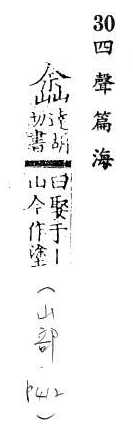 30 四聲篇海
嵞 达胡切書曰娶于丨山今作塗
(山部. P412)